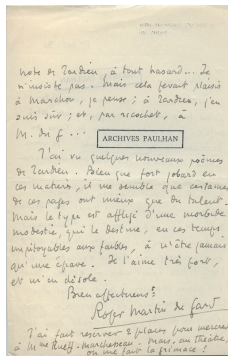 note de Tardieu, à tout hasard... Je
n'insiste pas. Mais cela ferait plaisir
à Marchon, je pense ; à Tardieu, j'en
suis sûr ; et, par ricochet, à
M. du G...
ARCHIVES PAULHAN
J'ai vu quelques nouveaux poèmes
de Tardieu. Bien que fort jobard en
ces matières, il me semble que certaines
de ces pages ont mieux que du talent.
Mais le type est affligé d'une morbide
modestie, qui le destine, en ces temps
impitoyables aux faibles, à n'être jamais
qu'une épave. Je l'aime très fort,
et m'en désole.
Bien affectueux
Roger Martin du Gard
J'ai fait réserver 2 places pour mercredi
à Mme Rueff-Marchepeau. Mais, au théâtre,
on me fait la grimace !